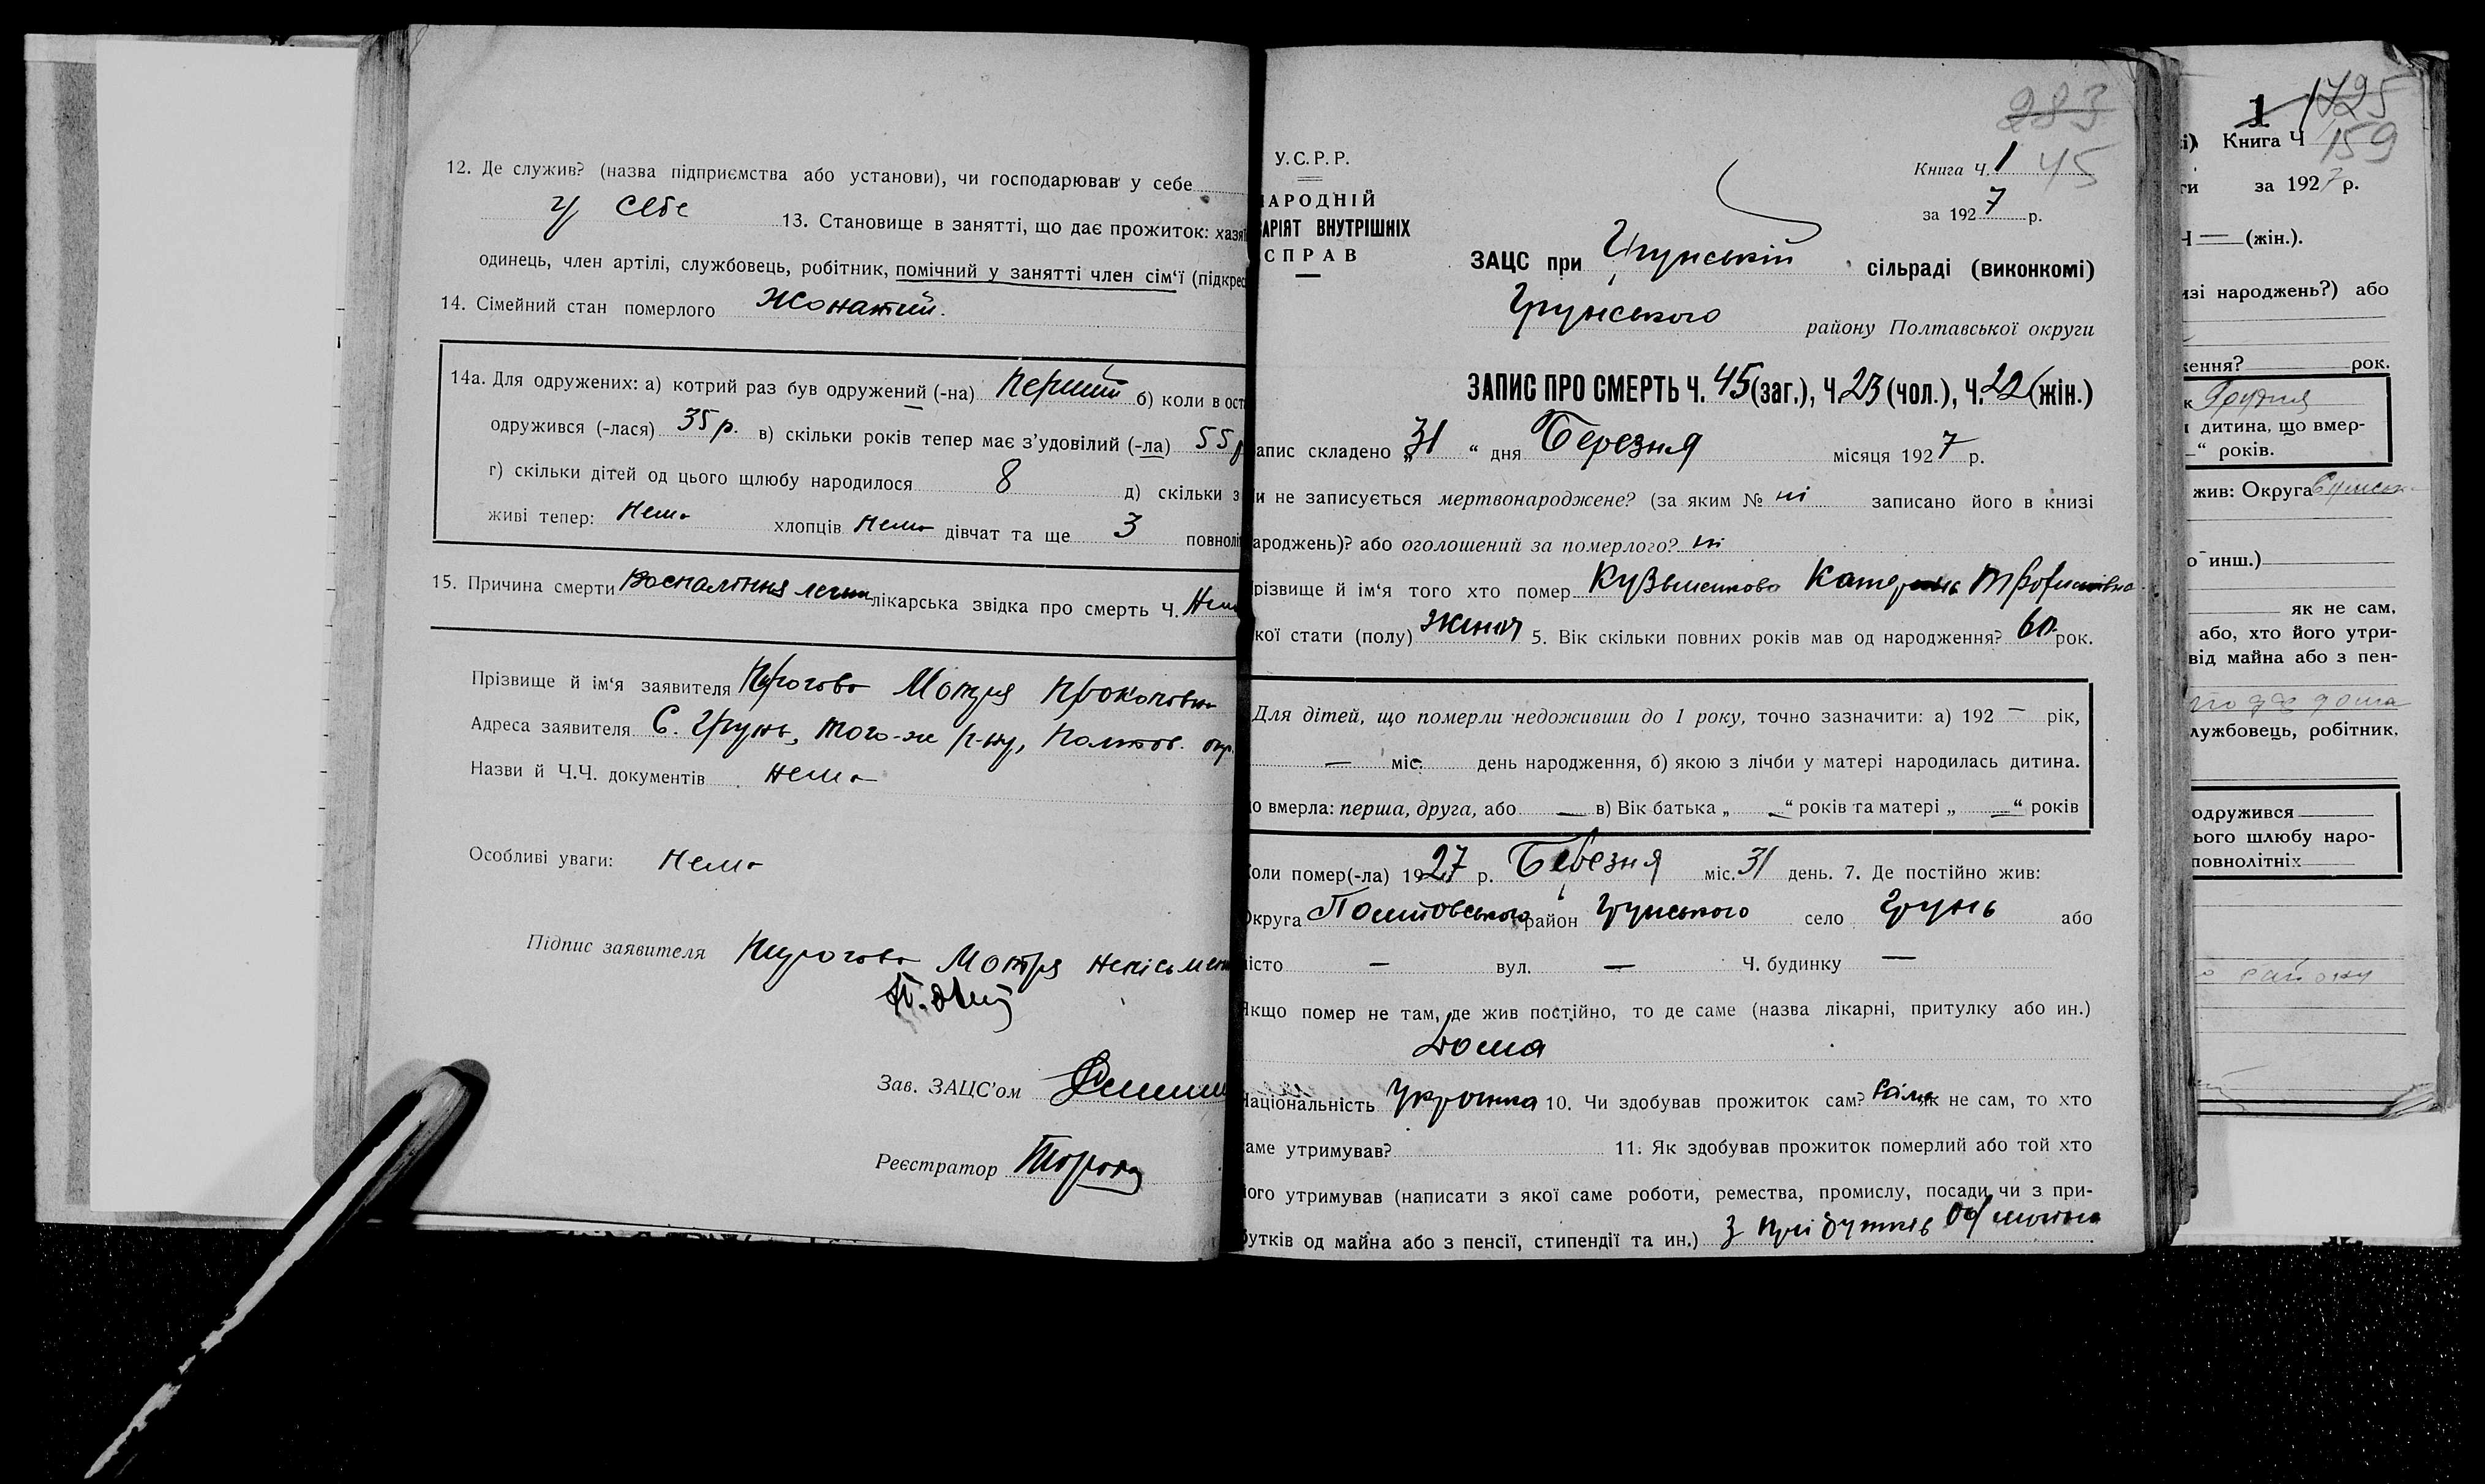 12. Де служив? (назва підприємства або установи), чи господарював у себе
у себе 13. Становище в занятті, що дає прожиток: хазя
одинець, член артілі, службовець, робітник, помічний у занятті член сім‘ї (підкрес
14. Сімейний стан померлого Жонатий.
14а. Для одружених: а) котрий раз був одружений (-на) Перший б) коли в ост
одружився (-лася) 35 р. в) скільки років тепер має з’удовілий (-ла) 55 р
г) скільки дітей од цього щлюбу народилося 8 д) скільки з
живі тепер: Нема хлопців Нема дівчат та ще 3 повноліт
15. Причина смерти Воспаління легких лікарська звідка про смерть Ч. Нем
Прізвище й ім‘я заявителя Мотря Прокоповна
Адреса заявителя С. Грунь, того-ж р-ну, Полтов. окр.
Назви й Ч.Ч. документів Нема
Особливі уваги: Нема
Підпис заявителя Мотря неписьмен
Зав. ЗАЦС’ом
Реєстратор
283
У.С.Р.Р.
Книга Ч. 1 45
АРОДНІЙ
за 1927 р.
АРІЯТ ВНУТРІШНІХ
СПРАВ
ЗАЦС при Грунській сільраді (виконкомі)
Грунського району Полтавської округи
ЗАПИС ПРО СМЕРТЬ Ч. 45 (заг.), Ч. 23 (чол.), Ч. 22 (жін.)
апис складено „31“ дня Березня місяця 1927 р.
и не записується мертвонароджене? (за яким № ні записано його в книзі
ароджень)? або оголошений за померлого? ні
різвище й ім‘я того хто помер Кузьменкова Катерина Трофимівна
кої стати (полу) жіноч 5. Вік скільки повних років мав од народження? 60 рок.
Для дітей, що померли недоживши до 1 року, точно зазначити: а) 192 — рік,
— міс. день народження, б) якою з лічби у матері народилась дитина.
о вмерла: перша, друга, або — в) Вік батька „ — “ років та матері „ — “ років
оли помер(-ла) 1927 р. Березня міс. 31 день. 7. Де постійно жив:
Округа Полтовського район Грунського село Грунь або
істо — вул. — Ч. будинку —
Якщо помер не там, де жив постійно, то де саме (назва лікарні, притулку або ин.)
Дома
Національність Украинка 10. Чи здобував прожиток сам? Сама як не сам, то хто
аме утримував? 11. Як здобував прожиток померлий або той хто
ого утримував (написати з якої саме роботи, ремества, промислу, посади чи з при-
бутків од майна або з пенсії, стипендії та ин.) З прибутків од майна
1 1725
і) Книга Ч 159
ти за 1927 р.
Ч — (жін.).
изі народжень?) або
ження? рок.
к Грудня
дитина, що вмер-
“ років.
жив: Округа Сумськ
о инш.)
як не сам,
або, хто його утри-
від майна або з пен-
лужбовець, робітник,
одружився
ього шлюбу наро-
повнолітніх